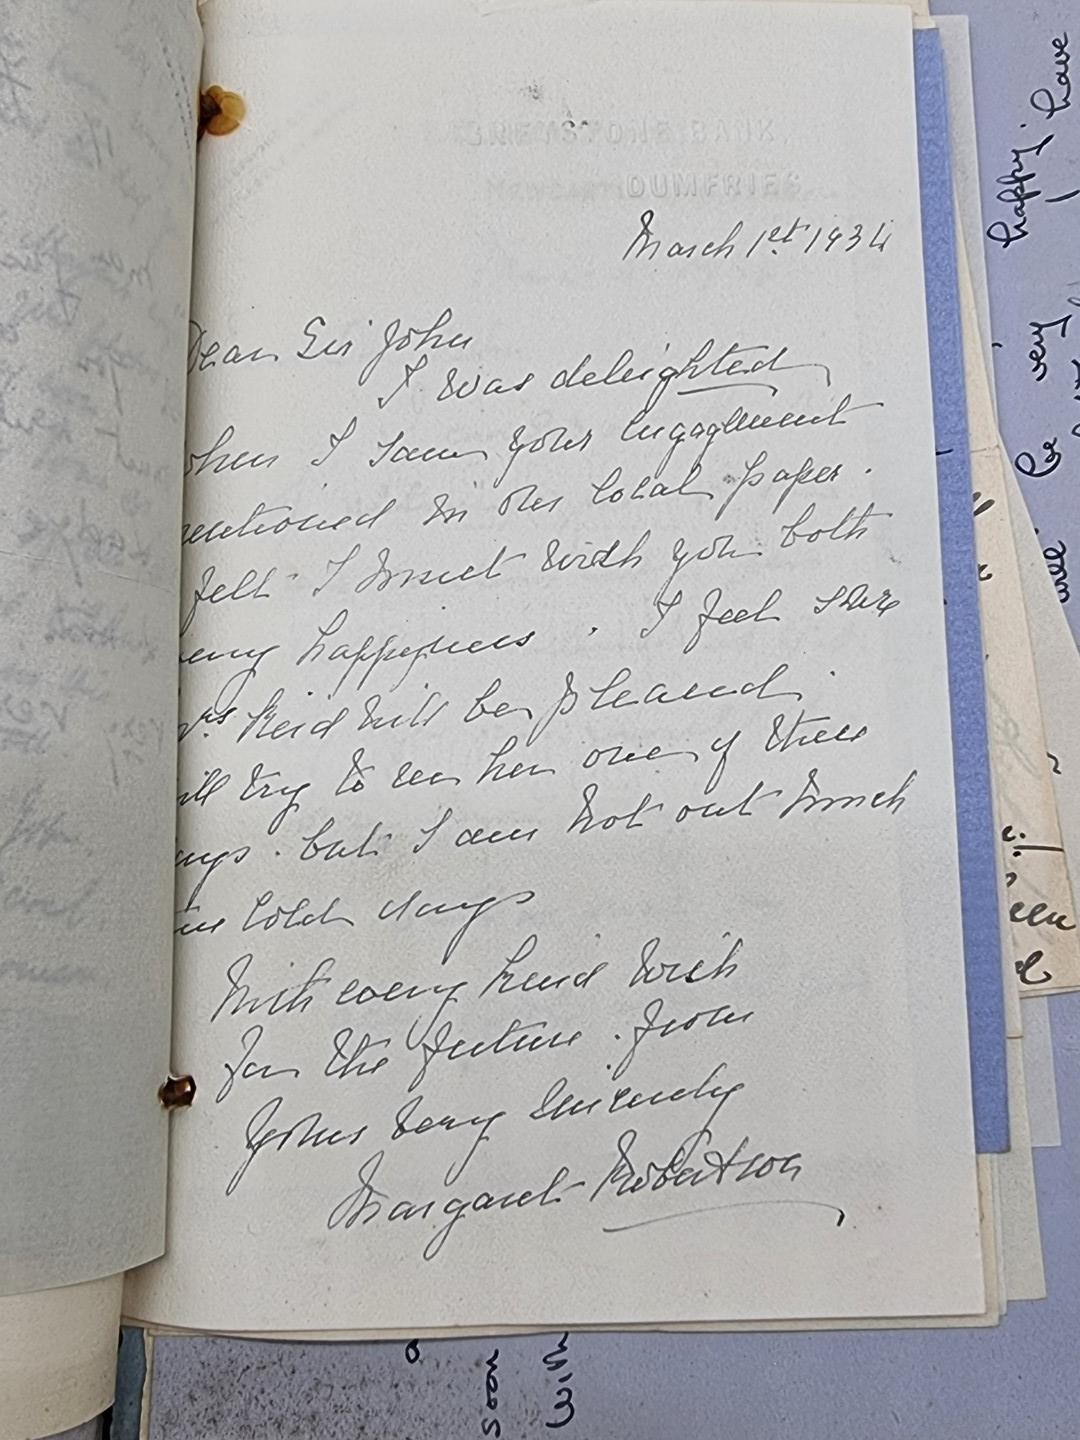 GREYSTONE BANK,
DUMFRIES
March 1st 1934
Dear Sir John
I was deleighted
when I saw your engagement
mentioned in our local paper.
felt I must wish you both
every happiness. I feel sure
Mrs. Reid will be pleased.
will try to see her one of these
days. but I am not out much
cold days
With every kind wish
for the future. from
Yours very sincerely
Margaret Robertson
happy; have
be very
will
soon
with